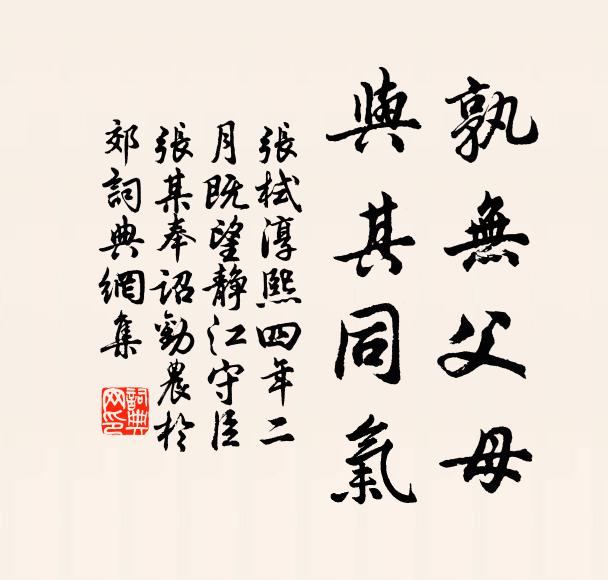 孰無父母
與其同氣
張栻淳熙四年二
月既望静江守臣
張某奉詔勸農於
郊詞典網集
詞典
网印